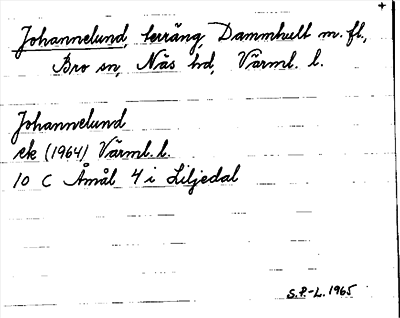 Johannelund, terräng, Dammhult m. fl.,
Bro sn, Näs hd, Värml. l.
Johannelund
ek (1964) Värml. l.
10 C Åmål 4 i Liljedal
S.P.-L. 1965